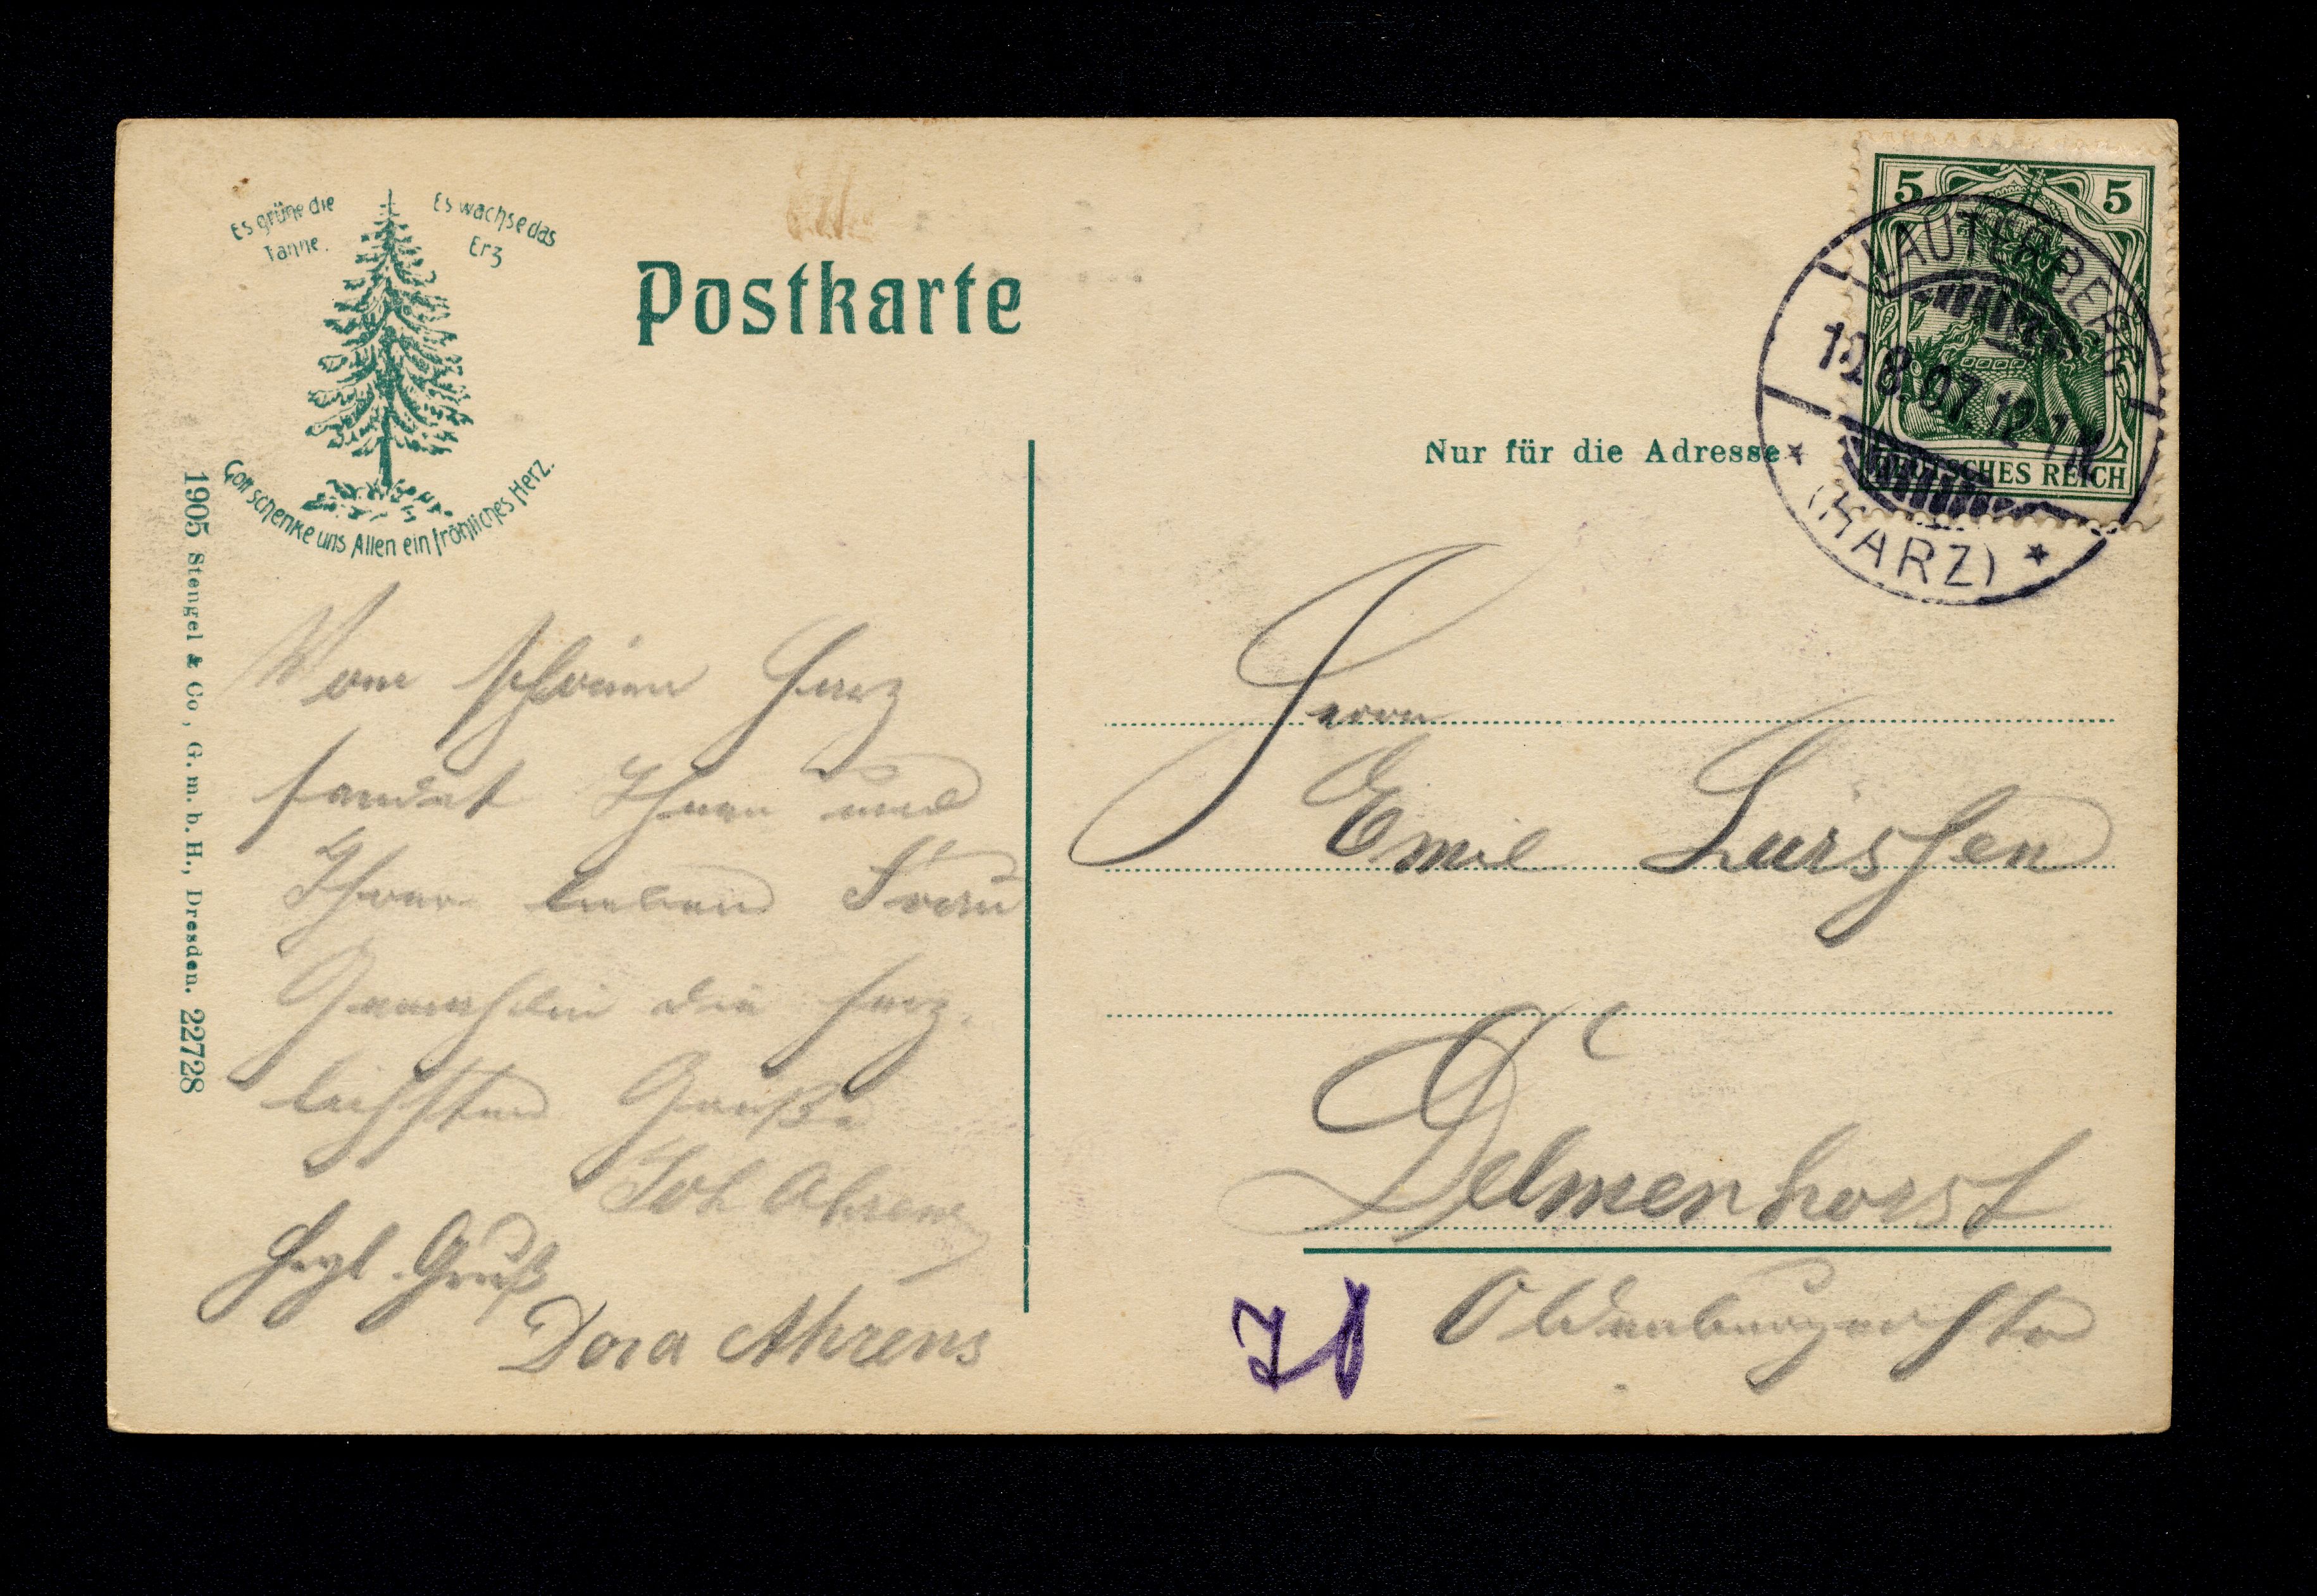 Es grüne die
Tanne.
Es wachse das
Erz
Gott schenke uns Allen ein fröhliches Herz.
1905 Stengel & Co, G. m. b. H., Dresden. 22728
Postkarte
Vom schönen Harz
sendet Ihnen und
Ihrer lieben Frau
Gemahlin die herz-
lichsten Grüße
Joh Ahrens
Hrzl. Gruß
Dora Ahrens
5 5
DEUTSCHES REICH
LAUTERBERG
8.07. 12-1 N
* (HARZ) *
Nur für die Adresse
Herrn
Emil Lürssen
Delmenhorst
Oldenburgerstr